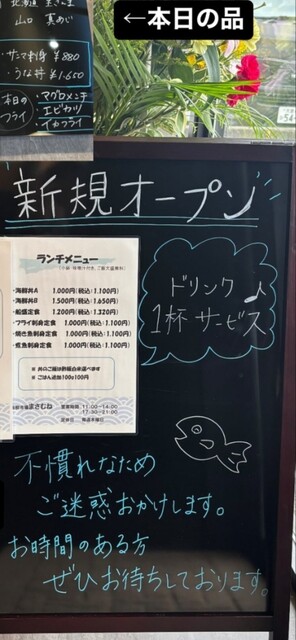 ←本日の品
北海道 生さんま
山口 真あじ
・サンマ刺身 ¥880
・うな丼 ¥1,650
本日のフライ
・マグロメンチ
・エビカツ
・イカフライ
新規オープン
ランチメニュー
・海鮮丼A 1,000円(税込:1,100円)
・海鮮丼B 1,500円(税込:1,650円)
・船盛定食 1,200円(税込:1,320円)
・フライ刺身定食 1,000円(税込:1,100円)
・焼き魚刺身定食 1,000円(税込:1,100円)
・煮魚刺身定食 1,000円(税込:1,100円)
※ 丼のご飯は酢飯白米選べます
※ ごはん追加100g100円
まさむね
営業時間 11:00~14:00
17:30~21:00
定休日 毎週木曜日
ドリンク
1杯サービス♪
不慣れなため
ご迷惑おかけします。
お時間のある方
ぜひお待ちしております。